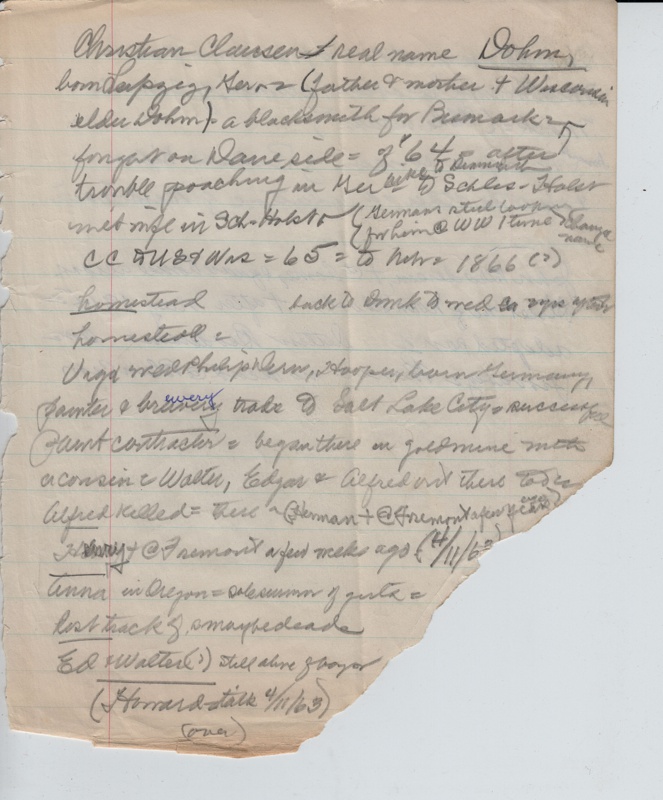 Christian Clausen + real name Dohm,
born Leipzig, Ger. = (father & mother + Wisconsin
elder Dohm) = a blacksmith for Bismark =
fought on Dane side = of "64 = after
trouble poaching in Ger to Denmark to Schles-Holst
met wife in Sch-Holst (German steel
for him @ WW 1 time change
name
CC to US & Wis = 65 = to Nebr = 1866 (?)
homestead back to to wed
homestead =
wed Philip Dern, Hooper, born Germany,
painter & brewery trade to Salt Lake City = successful
paint contractor = began there in gold mine with
a cousin = Walter, Edgar & Alfred out there today
Alfred killed = there = (Herman + @ Fremont a few years ago)
Henry + @ Fremont a few weeks ago (4/11/63)
Anna in Oregon = sole survivor of girls =
lost track of, maybe dead
Ed & Walter (?) still alive of boys
(Howard talk 4/11/63)
(over)